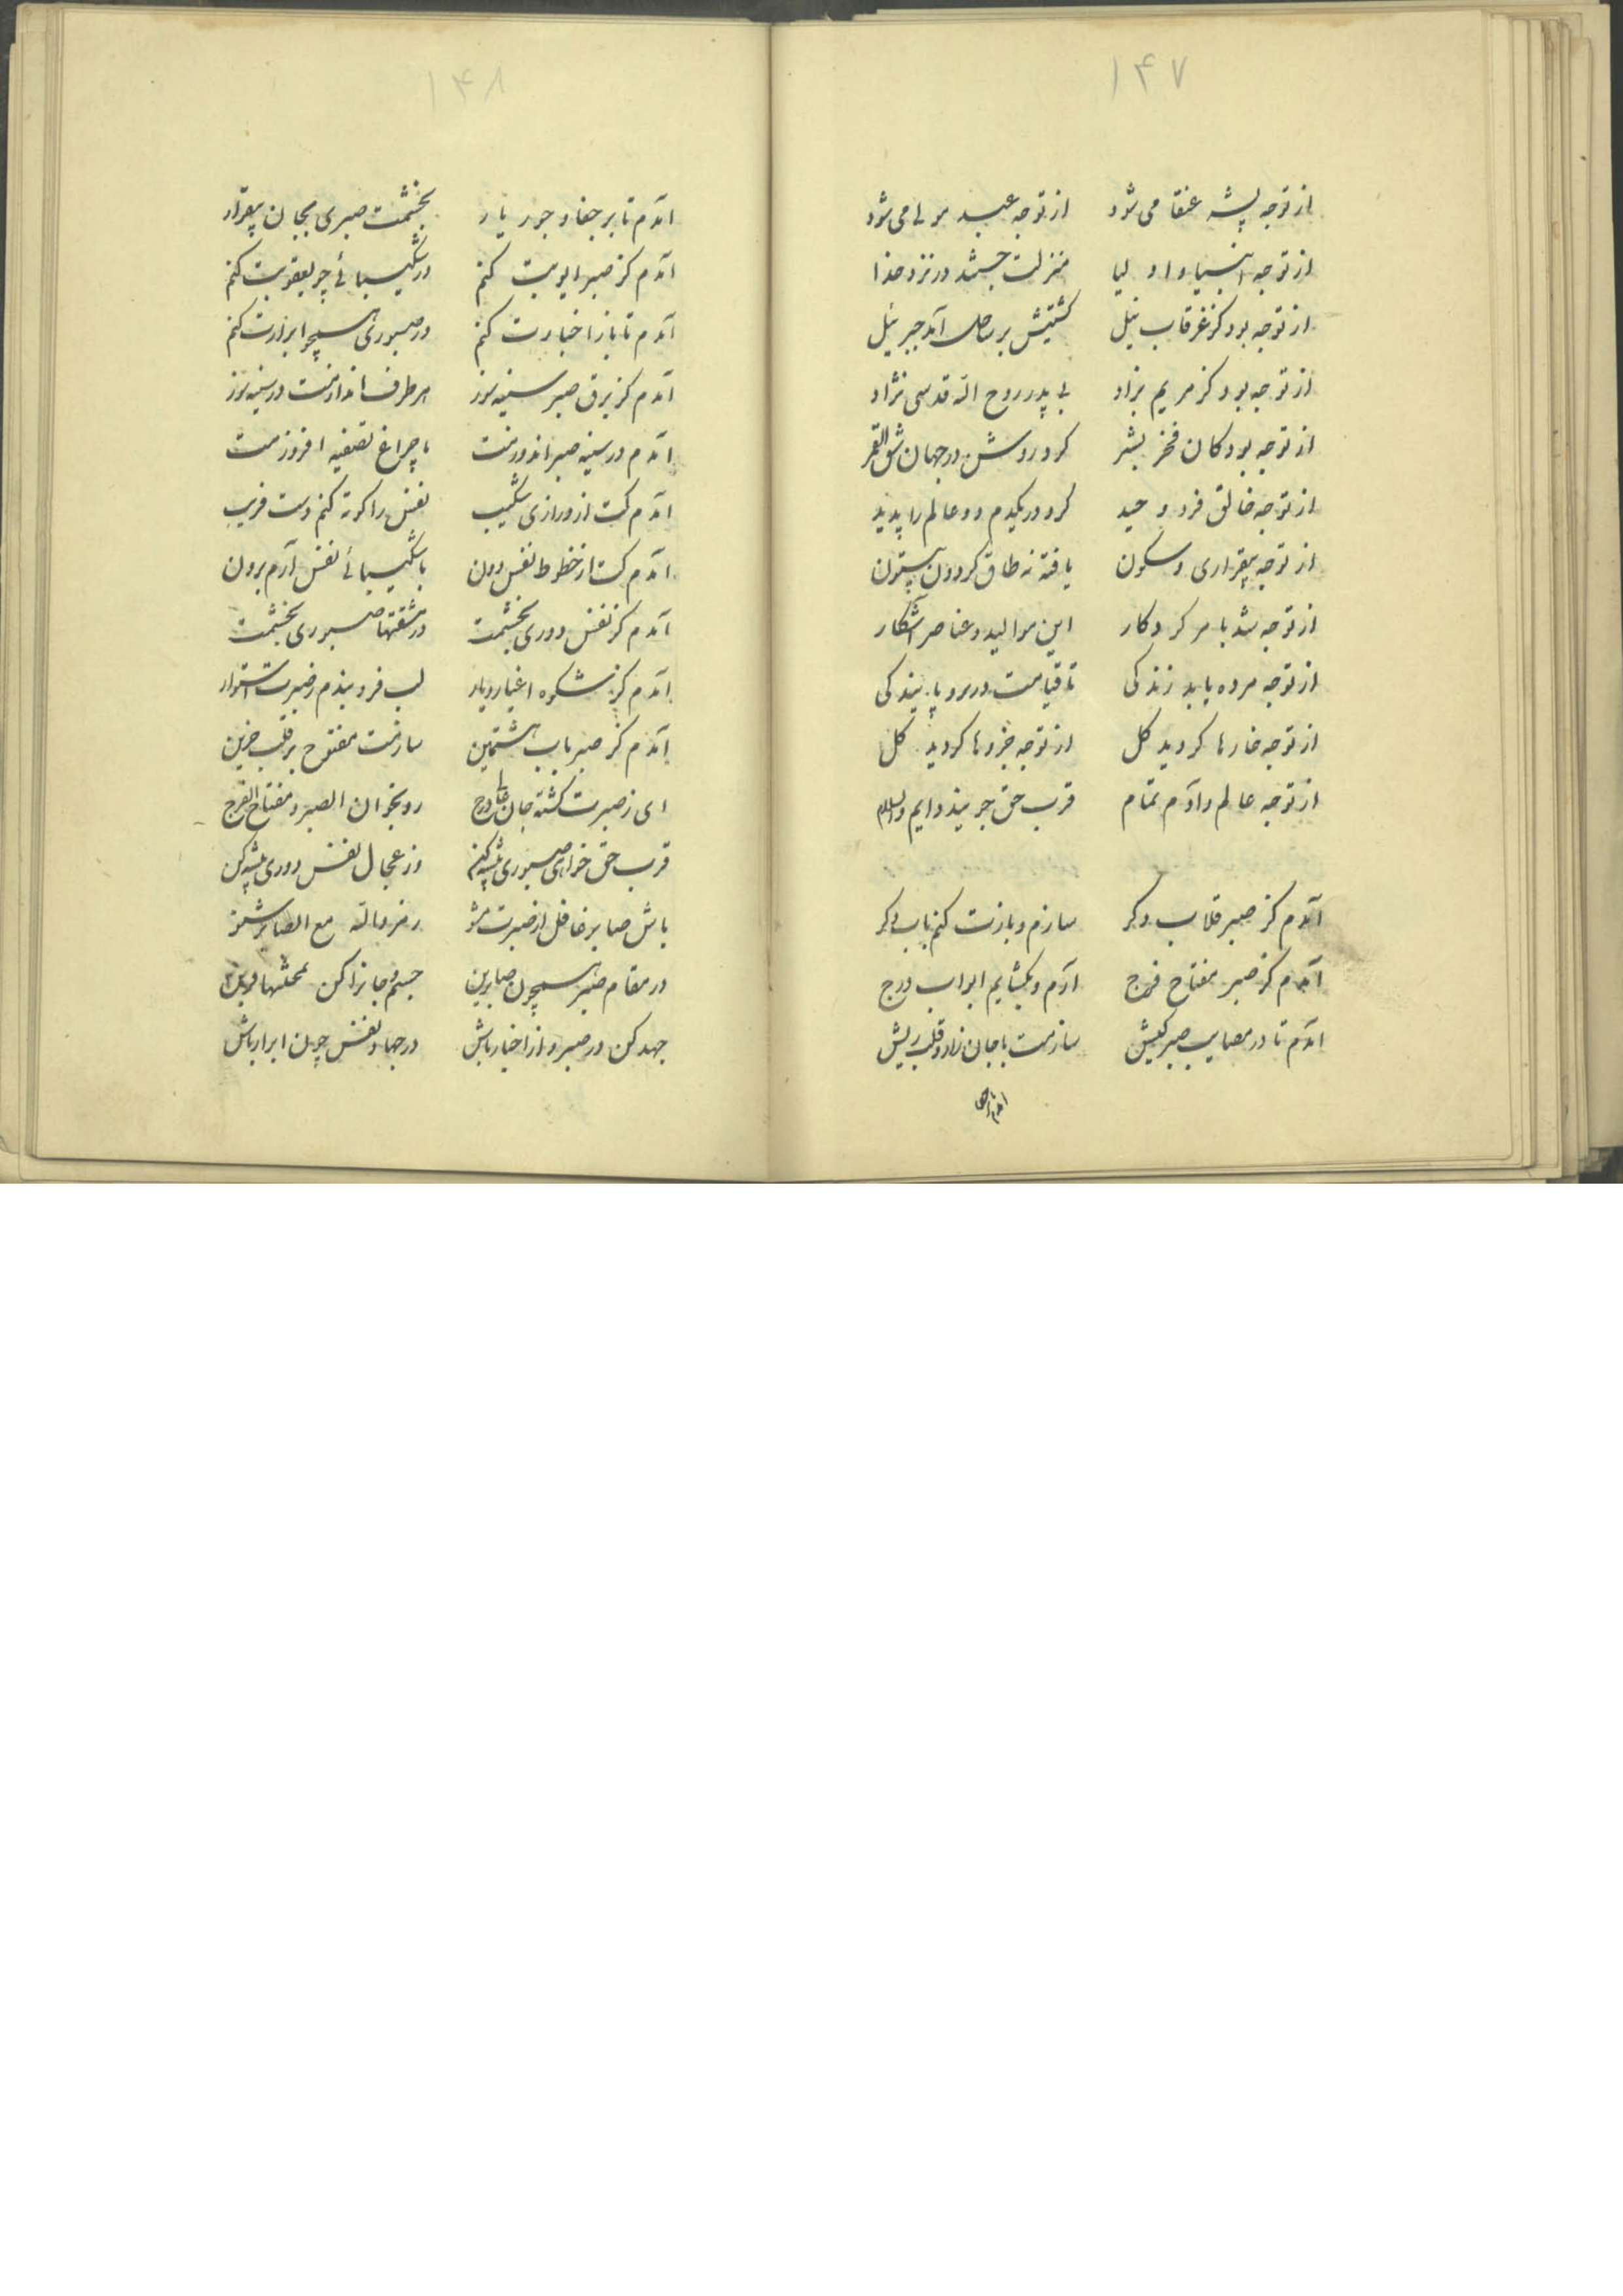 ۱۴۷
از توجه پشه عنقا می شود از توجه عبد مولی می شود
از توجه انبیا و اولیا منزلت جستند در نزد خدا
از توجه بود کز غرقاب نیل کشتیش بر ساحل آمد جبرئیل
از توجه بود کز مریم بزاد بی پدر روح اله قدسی نژاد
از توجه بود کان فخر بشر کرد روشن در جهان شق القمر
از توجه خالق فرد وحید کرد در یکدم دو عالم را پدید
از توجه بیقراری و سکون یافته نه طاق گردون بیستون
از توجه شد بامر کردکار این موالید و عناصر آشکار
از توجه مرده یابد زندکی تا قیامت در مرد پایندکی
از توجه خارها کردید کل از توجه جزوها کردید کل
از توجه عالم و آدم تمام قرب حق جویند دایم والسلام
آمدم کز صبر قلاب دکر سازم و بازت کنم باب دکر
آمدم کز صبر مفتاح فرج آرم و بکشایم ابواب درج
آمدم تا در مصایب صبر کیش سازمت با جان زار و قلب ریش
۱۴۸
آمدم تا بر جفا و جور یار بخشمت صبری بجان بیقرار
آمدم کز صبر ایوبیت کنم در شکیبائی چو یعقوبت کنم
آمدم تا باز اخیارت کنم در صبوری همچو ابرارت کنم
آمدم کز برق صبر سینه سوز هر طرف اندازمت در سینه سوز
آمدم در سینه صبر اندوزمت با چراغ تصفیه افروزمت
آمدم کت از درازی شکیب نفس را کوته کنم دست فریب
آمدم کت از حظوظ نفس دون با شکیبائی نفس آرم برون
آمدم کز نفس دوری بخشمت در مشقتها صبوری بخشمت
آمدم کز شکوه اغیار و یار لب فرو بندم ز صبرت استوار
آمدم کز صبر باب هشتمین سازمت مفتوح بر قلب حزین
ای ز صبرت کشته جان رو بخوان الصبر و مفتاح الفرج
قرب حق خواهی صبوری پیشه کن وز عجال نفس دوری پیشه کن
باش صابر غافل از صبرت مشو رمز واله مع الصابر شنو
در مقام صبر همچون صابرین جسم و جانرا کن بمحنتها قرین
جهد کن در صبر و از اخیار باش در جهاد نفس چون ابرار باش